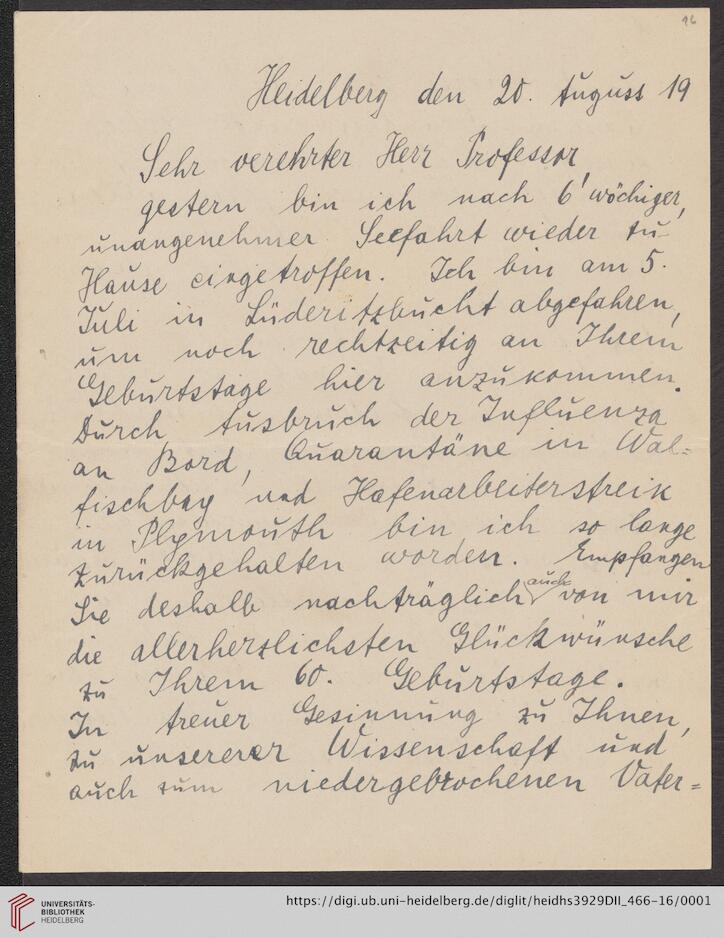 16
Heidelberg den 20. August 19
Sehr verehrter Herr Professor,
gestern bin ich nach 6'wöchiger,
unangenehmer Seefahrt wieder zu
Hause eingetroffen. Ich bin am 5.
Juli in Lüderitzbucht abgefahren,
um noch rechtzeitig an Ihrem
Geburtstage hier anzukommen.
Durch Ausbruch der Influenza
an Bord, Quarantäne in Wal=
fischbay und Hafenarbeiterstreik
in Plymouth bin ich so lange
zurückgehalten worden. Empfangen
Sie deshalb nachträglich auch von mir
die allerherzlichsten Glückwünsche
zu Ihrem 60. Geburtstage.
In treuer Gesinnung zu Ihnen,
zu unsererer Wissenschaft und
auch zum niedergebrochenen Vater=
UNIVERSITÄTS-
BIBLIOTHEK
HEIDELBERG
https://digi.ub.uni-heidelberg.de/diglit/heidhs3929DII_466-16/0001